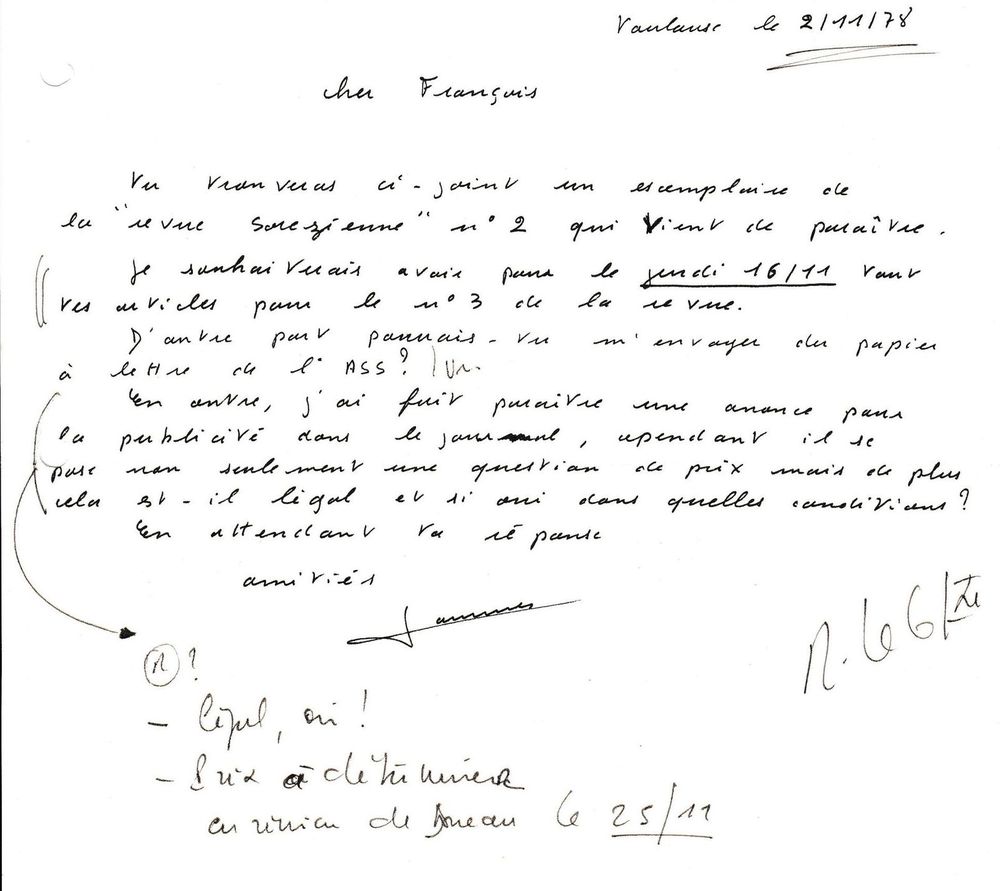 le 2/11/78
cher François
Tu trouveras ci-joint un exemplaire de
la "revue Sorezienne" n° 2 qui vient de paraître.
Je souhaiterais avoir pour le jeudi 16/11 tout
tes articles pour le n° 3 de la revue.
D'autre part pourrais-tu m'envoyer du papier
à lettre de l'ASS?
En outre, j'ai fait paraître une anonce pour
la publicité dans le journal, cependant il se
pose non seulement une question de prix mais de plus
cela est-il légal et si oui dans quelles conditions?
En attendant ta réponse
amitiés
R. le 6/XI
R ?
- légal, oui !
- Prix à déterminer
en réunion de Bureau le 25/11